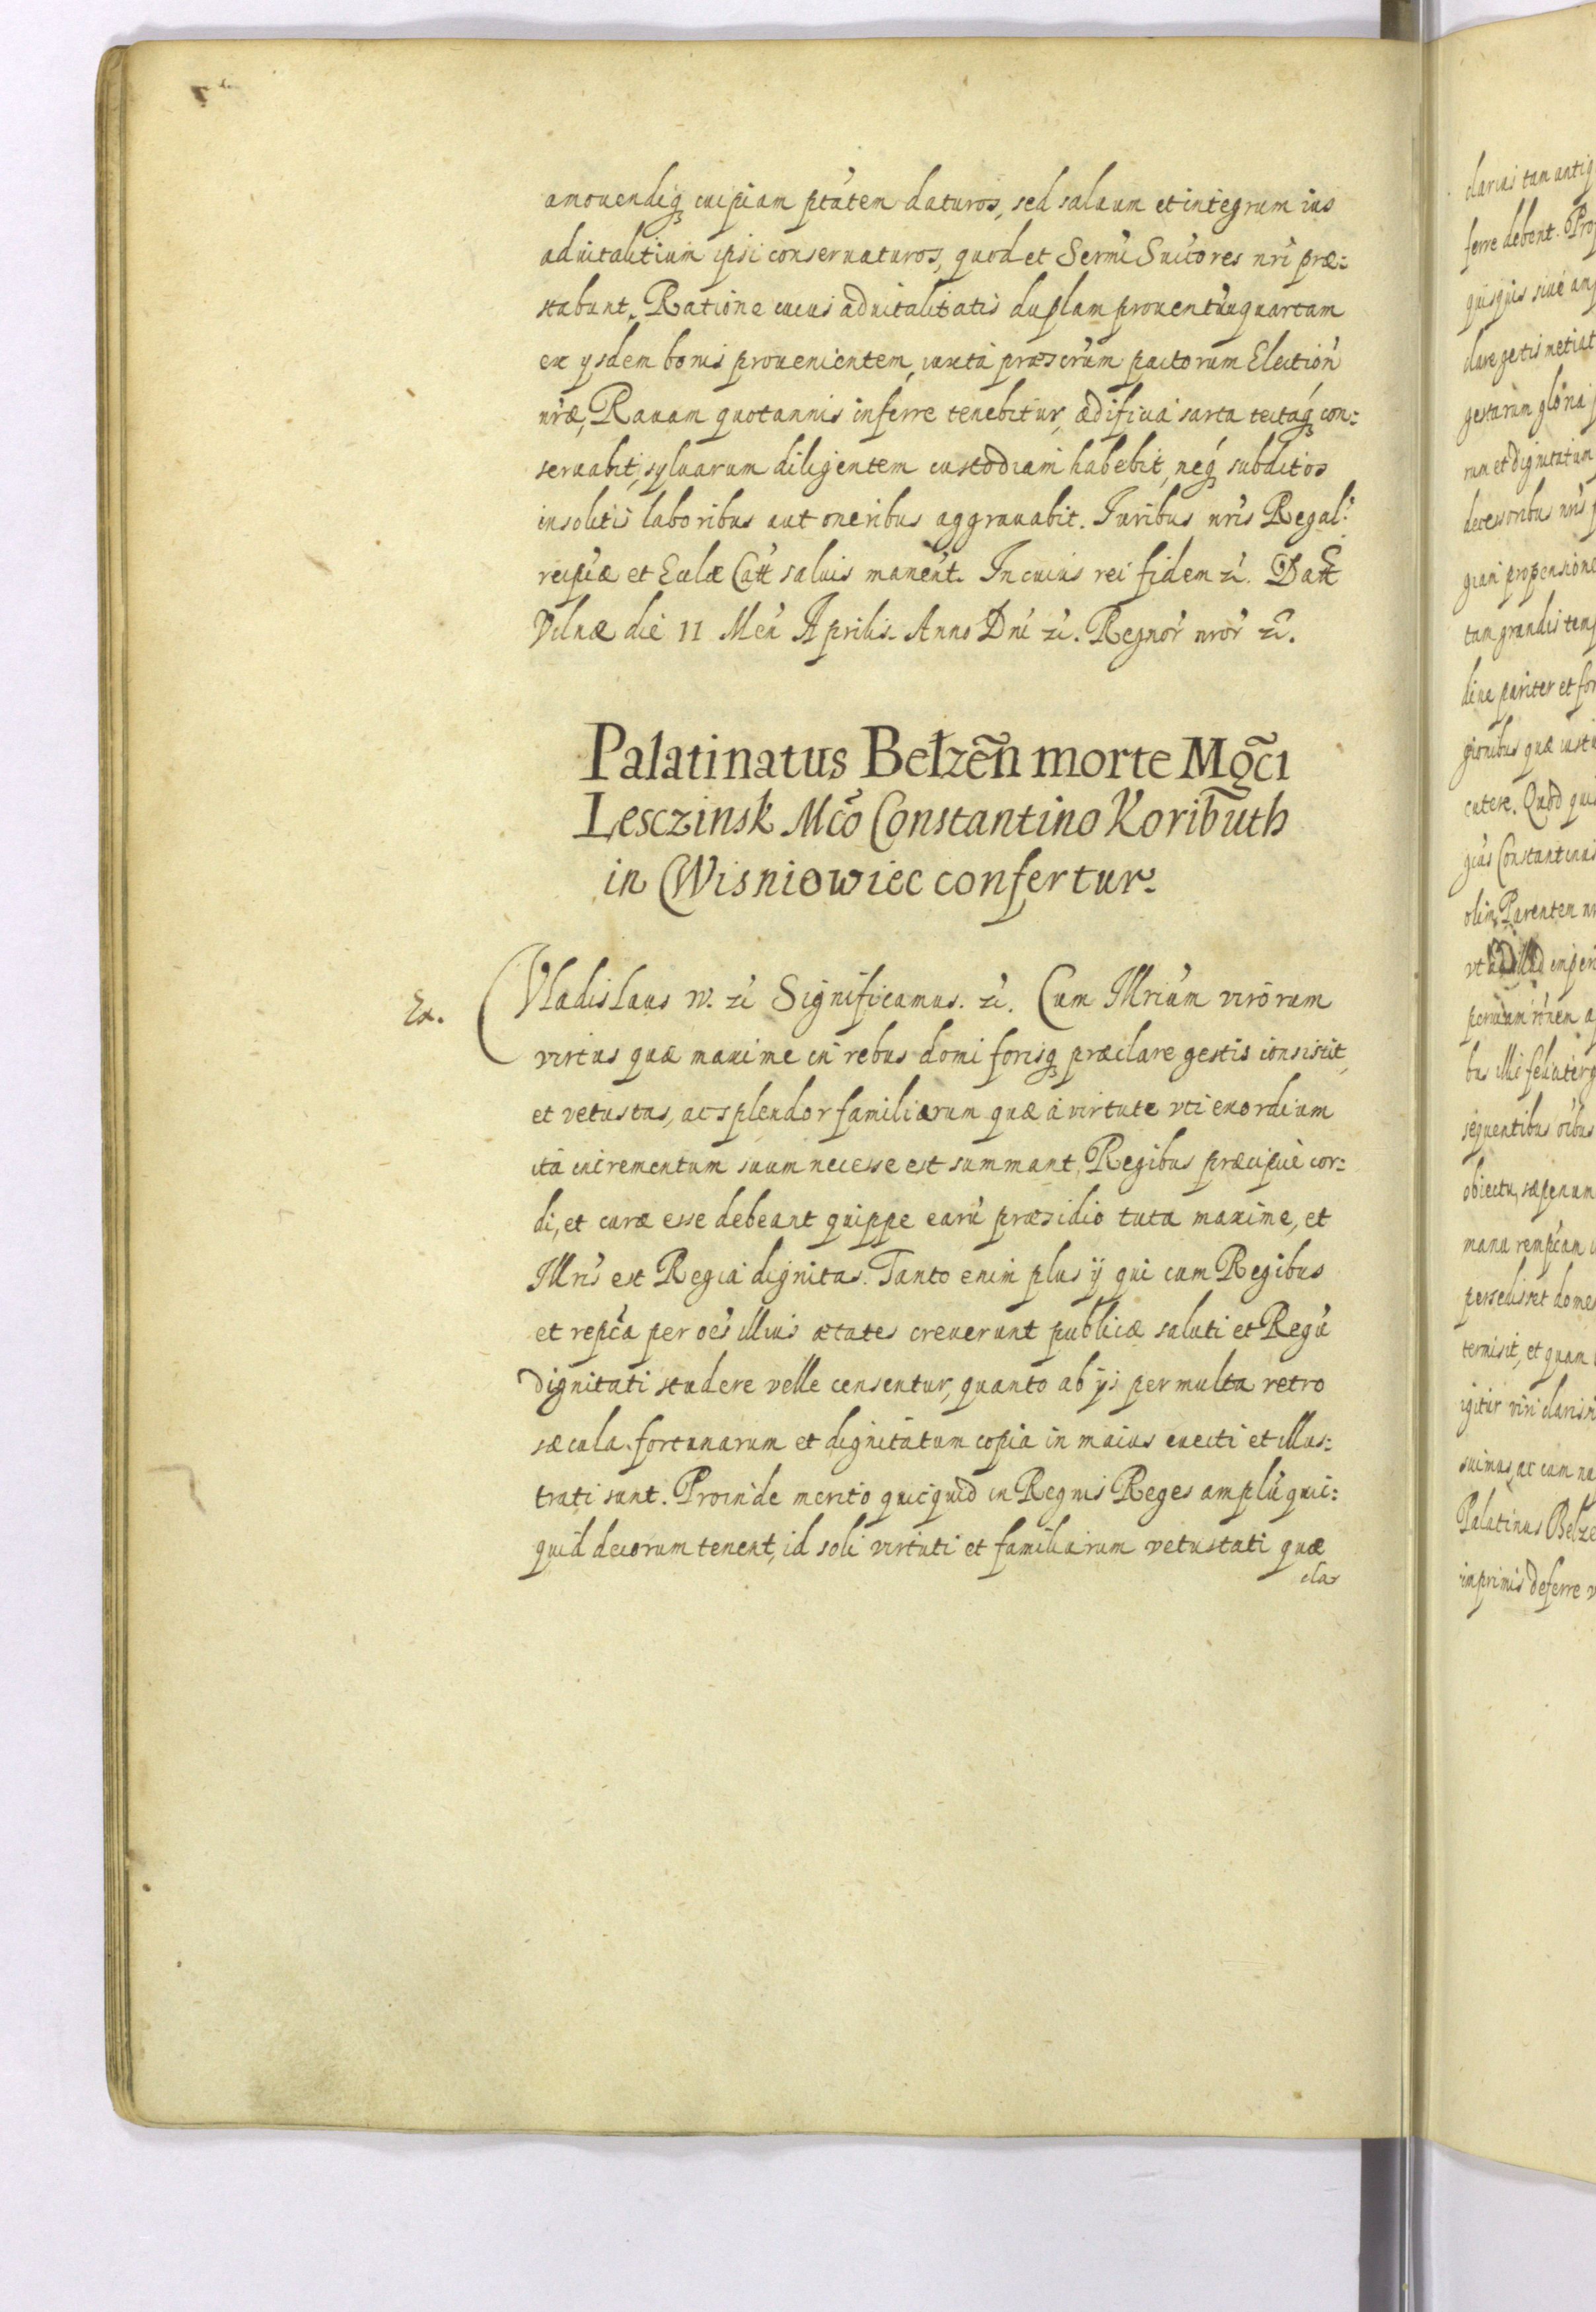 amouendiq cuipiam ptatem daturos, sed saluum et integrum ius
aduitalitium ipsi conseruaturos, quod et Sermi Succores nri præ:
stabunt. Ratione cuius aduitalitatis duplam prouentuu quartam
ex ysdem bonis prouenientem, iuxta præscrum pactorum Election
nræ, Rauam quotannis inferre tenebitur, ædificia sarta tectaq con:
seruabit, syluarum diligentem custodiam habebit, neq subditos
insolitis laboribus aut oneribus aggrauabit. Iuribus nris Regal:
reipcæ et Eclæ Catt saluis manent. In cuius rei fidem zc. Datt
Vilnæ die 11 Men Aprilis. Anno Dni zc. Regnor nror zc.
Palatinatus Bełzen morte Mgci
Lesczinsk Mco Constantino Koributh
in Wisniowiec confertur.
Ex.
Vladislaus IV. zc Significamus. zc. Cum Illrium virorum
virtus quæ maxime in rebus domi forisq præclare gestis consistit,
et vetustas, ac splendor familiarum quæ à virtute vti exordium
ita incrementum suum necesse est summant, Regibus præcipuè cor:
di, et curæ esse debeant quippe earu præsidio tuta maxime, et
Illris est Regia dignitas. Tanto enim plus ij qui cum Regibus
et repca per oes illius ætates creuerunt publicæ saluti et Regu
dignitati studere velle censentur, quanto ab ijs per multa retro
sæcula fortunarum et dignitatum copia in maius euecti et illus:
trati sunt. Proinde merito quicquid in Regnis Reges amplu quic:
quid decorum tenent, id soli virtuti et familiarum vetustati quæ
clar
clarius tam antiq
ferre debent. Pro
quisquis siue am
clare gestis metiat
gestarum gloria
rum et dignitatum
decessoribus nris
giam propensione
tam grandis temp
dine pariter et for
gionibus quæ iusta
cutere. Quod qui
gius Constantinus
olim Parentem
periculum
bus illi feliciter
sequentibus oibus
obiectu, sæpenum
mana rempcam
persedisset dome
termisit, et quam
igitur viri clarissi
suimus, ac cum na
Palatinus Belze
imprimis deferre